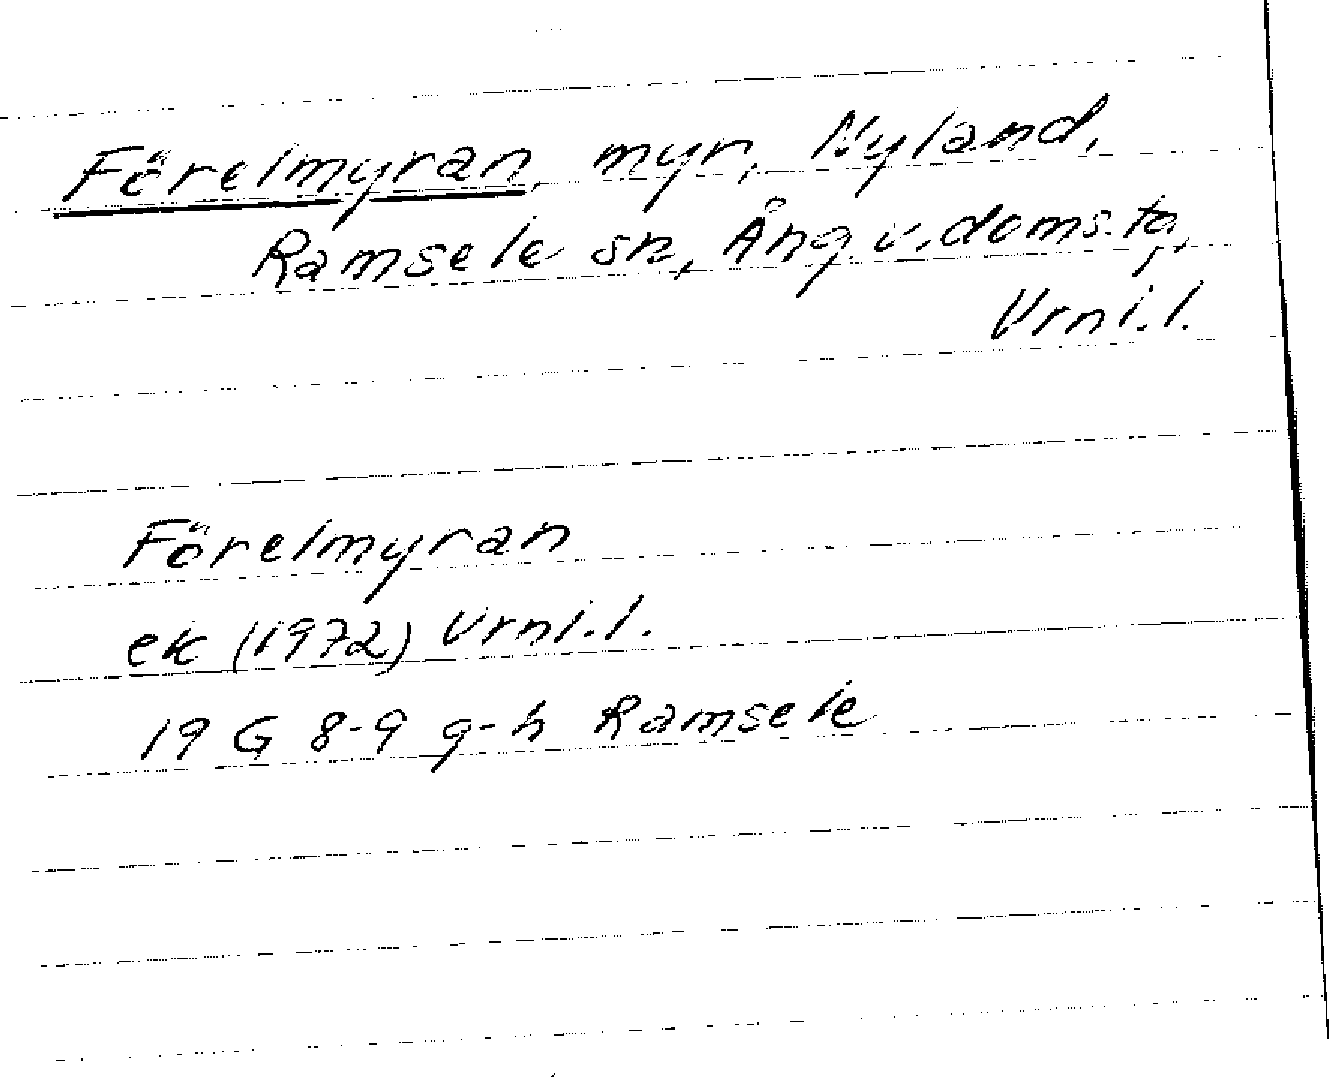 Förelmyran, myr, Nyland,
Ramsele sn, Ång. v. doms. tg,
Vrnl.l.
Förelmyran
ek (1972) Vrnl.l.
19 G 8-9 g-h Ramsele